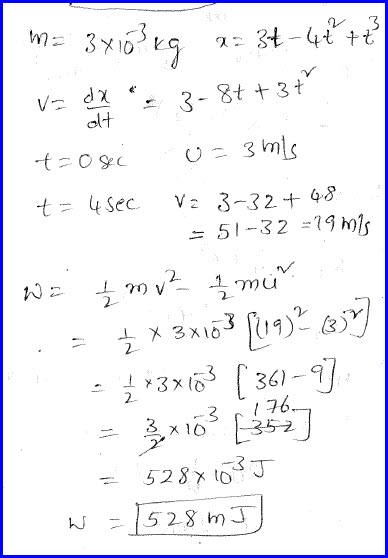 m = 3×10⁻³ kg x = 3t - 4t² + t³
v = dx/dt = 3 - 8t + 3t²
t = 0 sec U = 3 m/s
t = 4 sec V = 3 - 32 + 48
= 51 - 32 = 19 m/s
W = 1/2 mv² - 1/2 mu²
= 1/2 × 3×10⁻³ [(19)² - (3)²]
= 1/2 × 3×10⁻³ [361 - 9]
= 3/2 × 10⁻³ [352] 176
= 528 × 10⁻³ J
W = 528 mJ